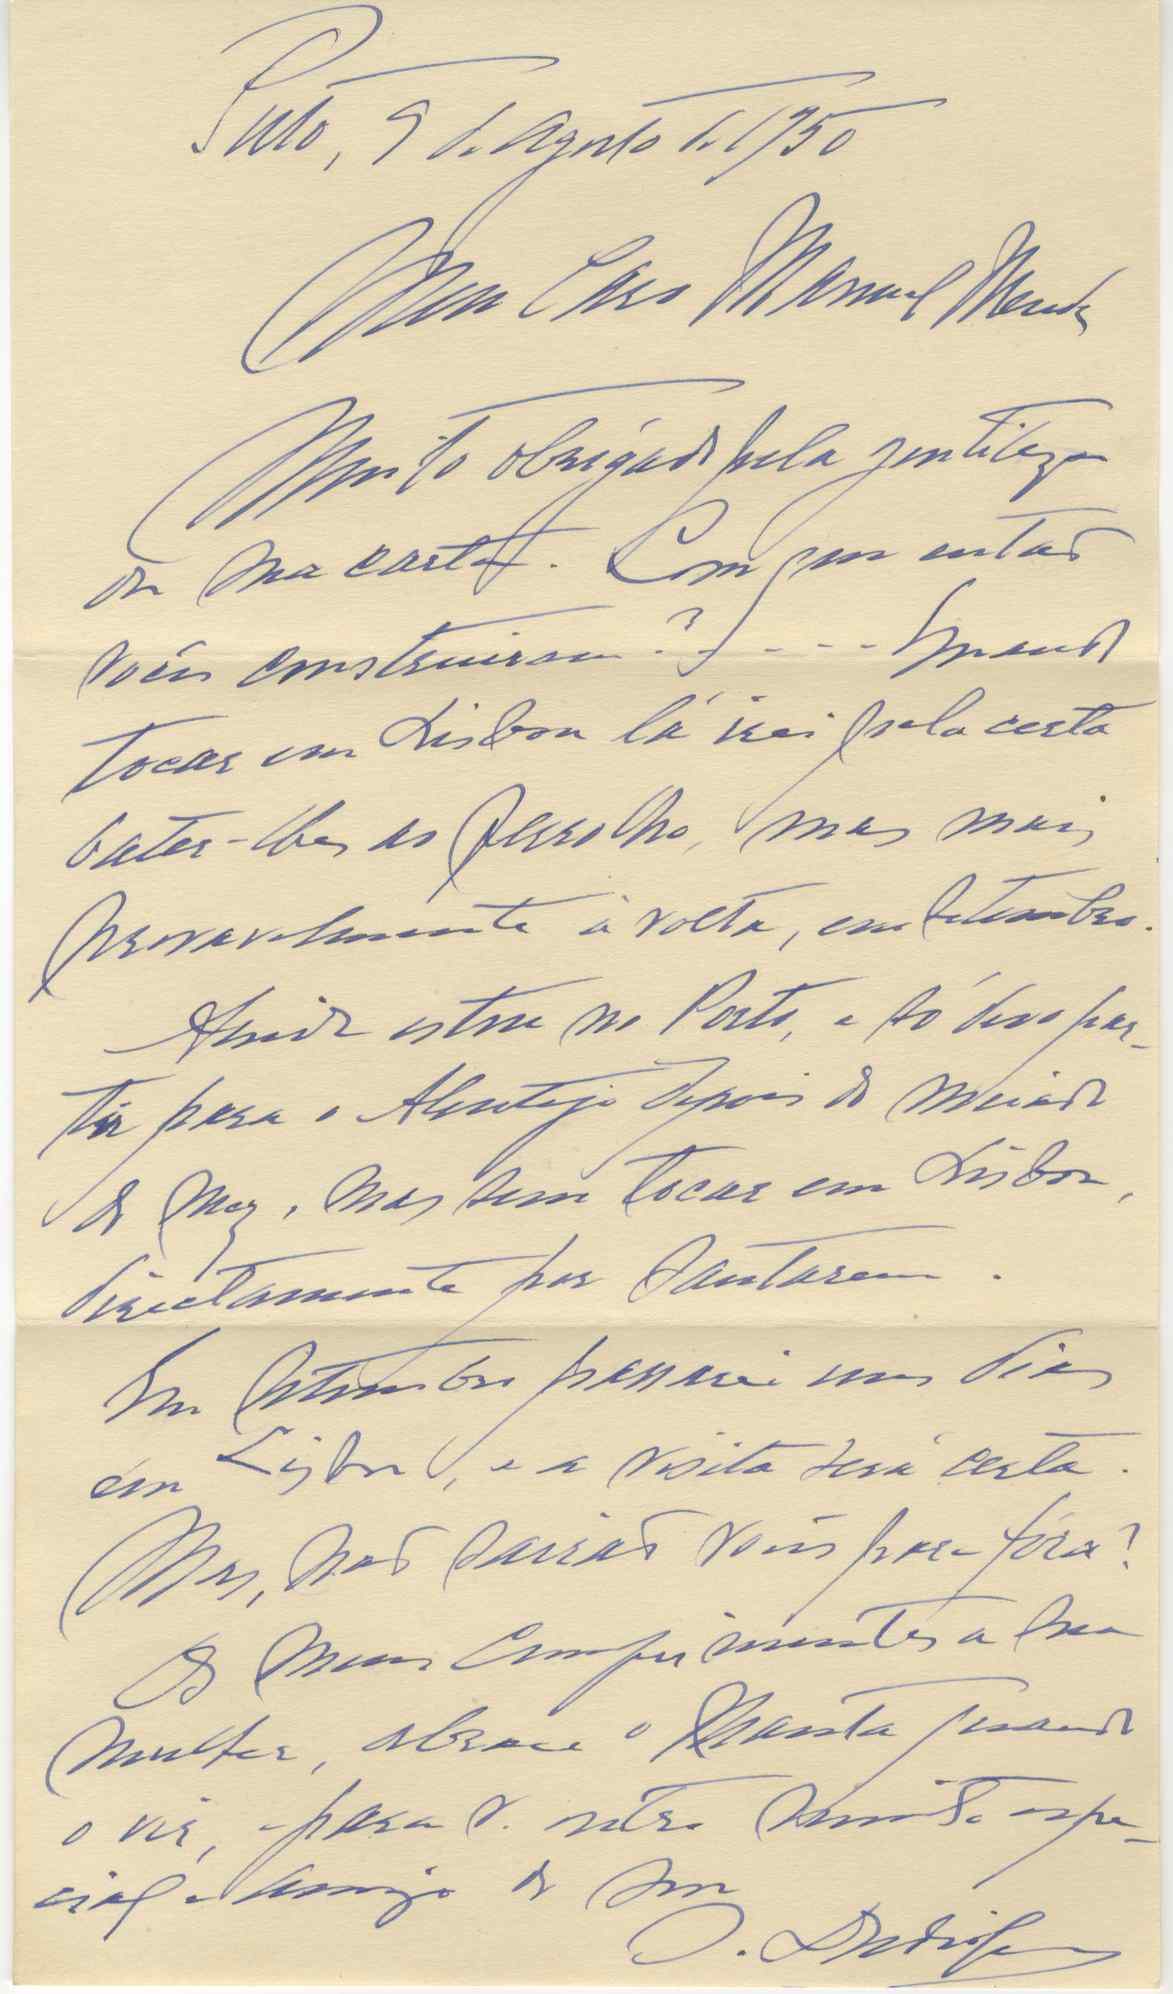 Porto, 9 de Agosto de 1950
Meu Caro Manuel Mendes
Muito obrigado pela gentileza
da sua carta. Com que então
vocês construiram? . . - - - Quando
tocar em Lisboa lá irei pela certa
bater-lhes ao ferrolho, mas mais
provavelmente à volta, em Setembro.
Ainda estou no Porto, e só devo par-
tir para o Alentejo depois do meiado
do mez, mas sem tocar em Lisboa,
directamente por Santarem.
Em Setembro passarei uns dias
em Lisboa, e a visita será certa.
Mas, não sairão vocês para fóra?
Os meus cumprimentos a sua
mulher, abrace o Manta quando
o vir, e para v. outro muito espe-
cial e amigo do seu